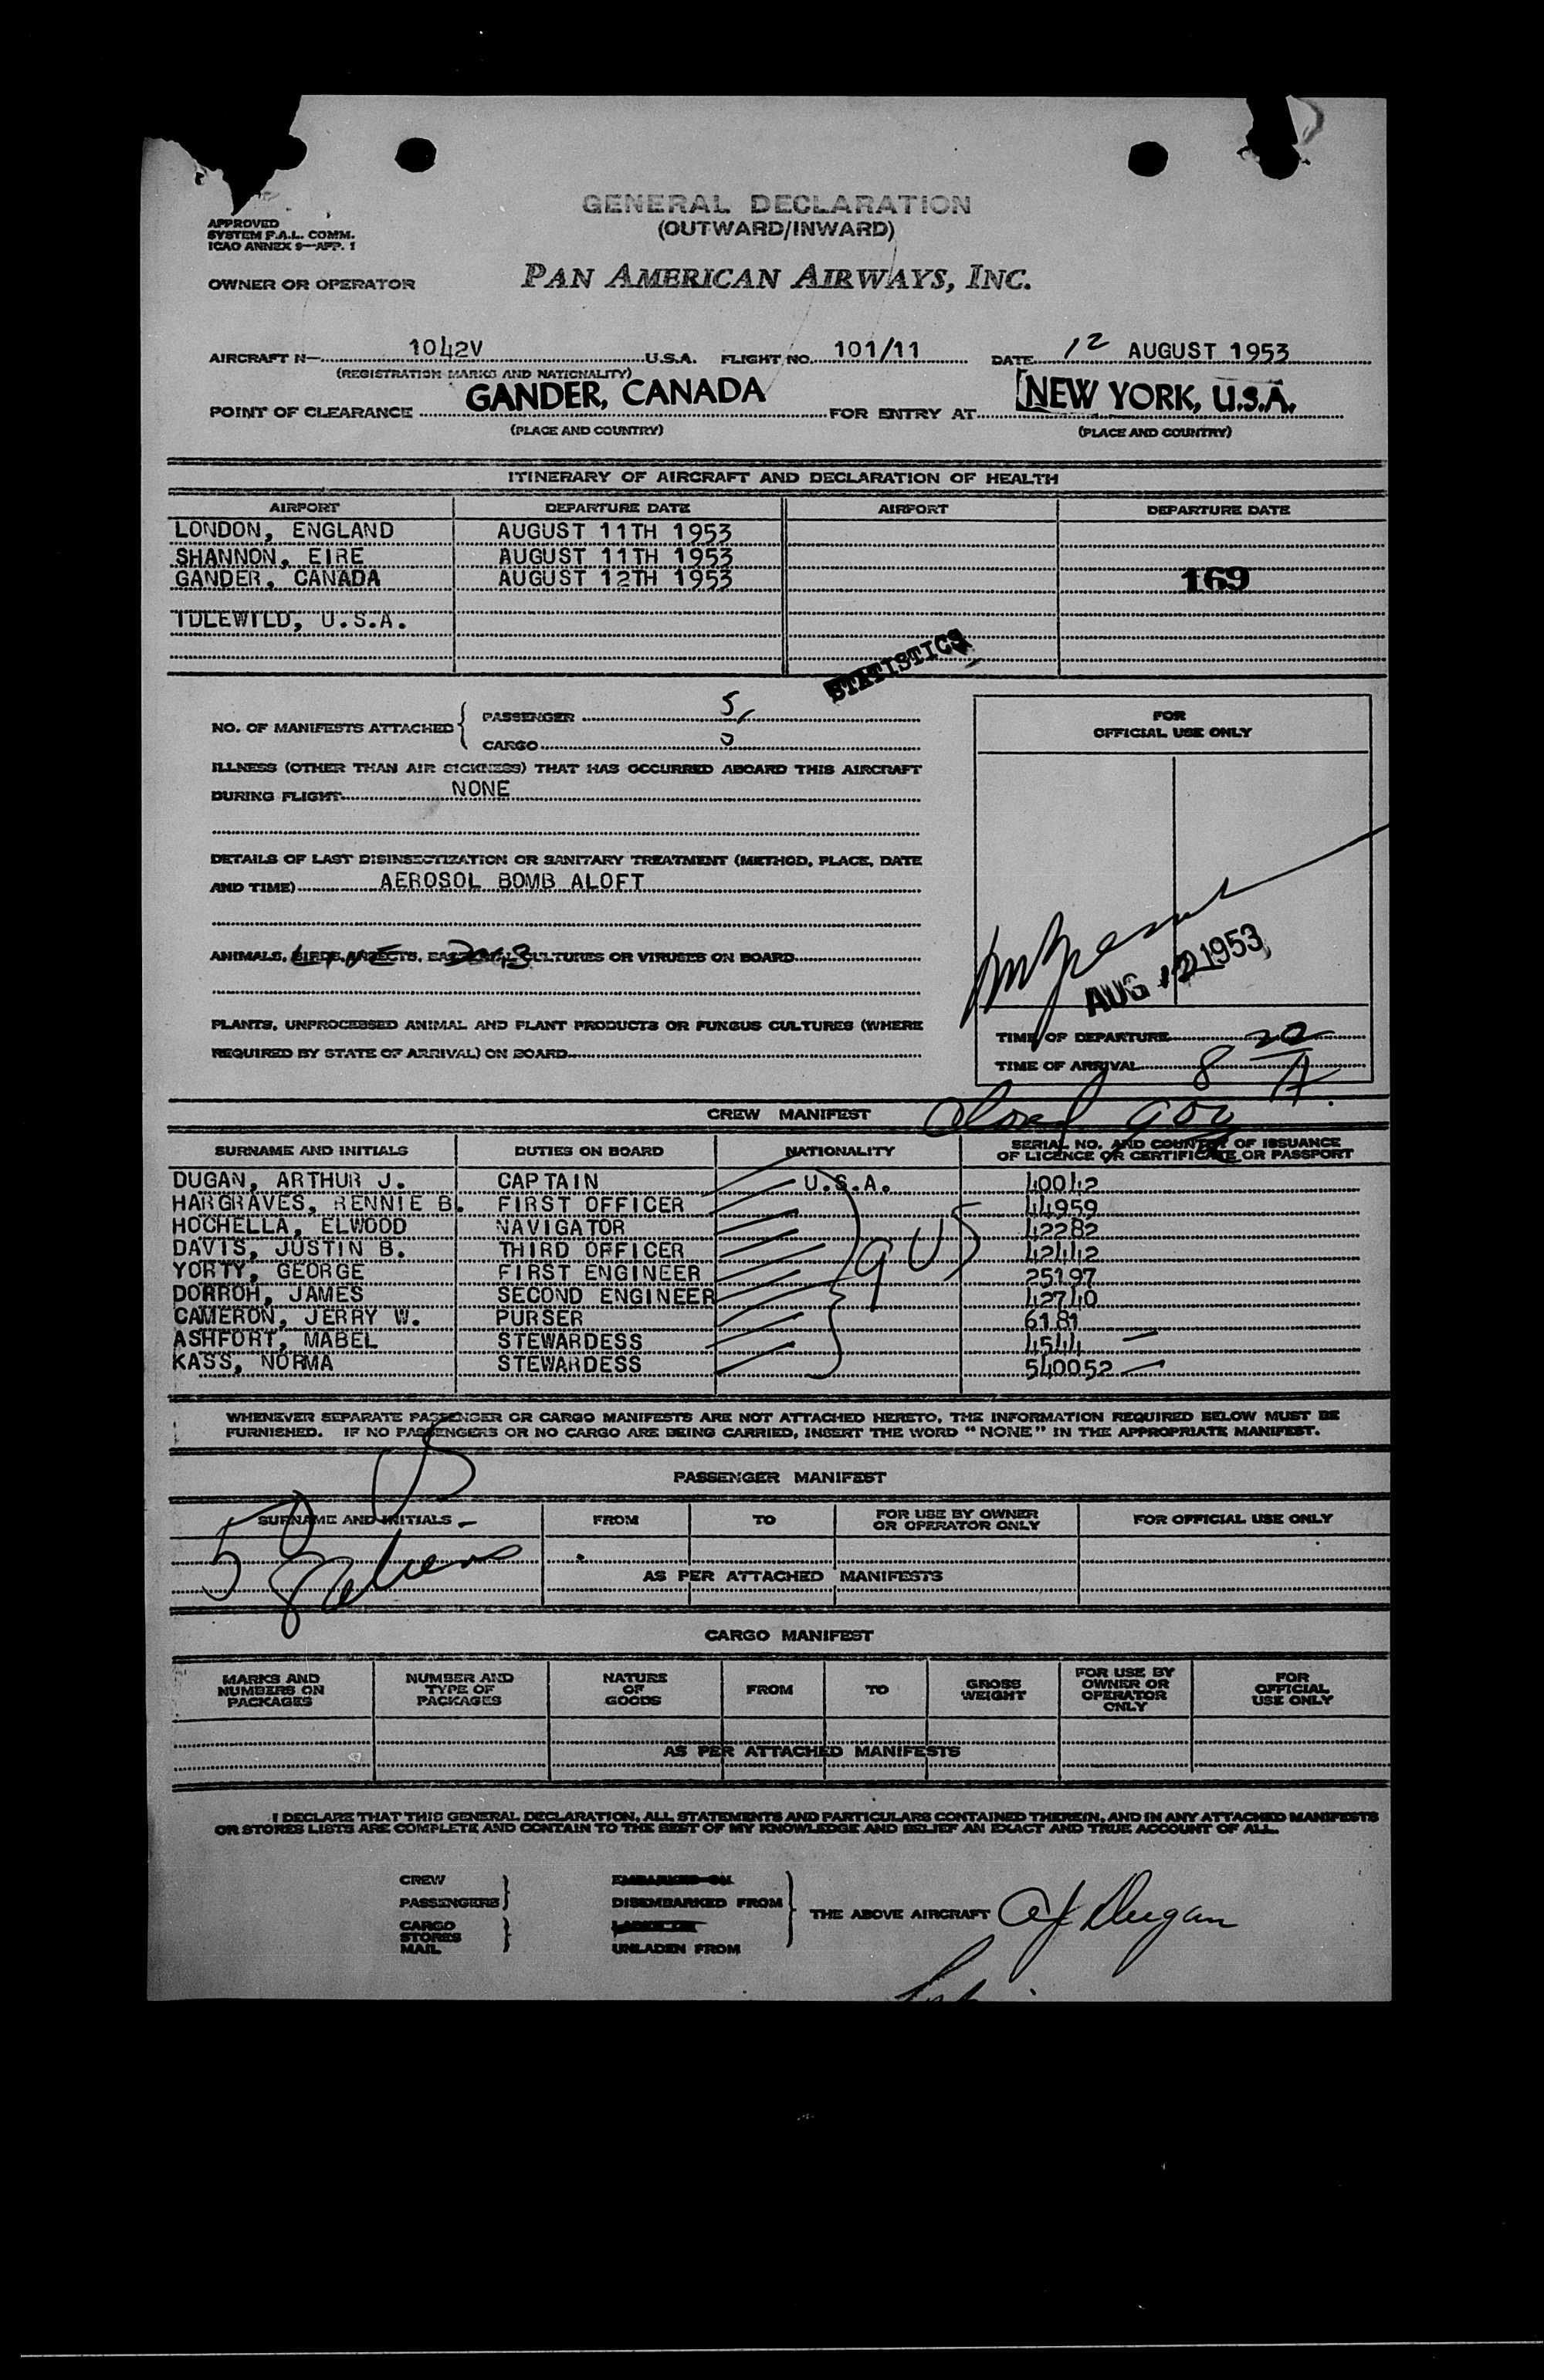 GENERAL DECLARATION
(OUTWARD/INWARD)
APPROVED
SYSTEM F.A.L. COMM.
ICAO ANNEX 9—APP. 1
OWNER OR OPERATOR PAN AMERICAN AIRWAYS, INC.
AIRCRAFT N— 1042V U.S.A. FLIGHT NO. 101/11 DATE 12 AUGUST 1953
(REGISTRATION MARKS AND NATIONALITY)
POINT OF CLEARANCE GANDER, CANADA FOR ENTRY AT NEW YORK, U.S.A.
(PLACE AND COUNTRY) (PLACE AND COUNTRY)
ITINERARY OF AIRCRAFT AND DECLARATION OF HEALTH
AIRPORT DEPARTURE DATE AIRPORT DEPARTURE DATE
LONDON, ENGLAND AUGUST 11TH 1953
SHANNON, EIRE AUGUST 11TH 1953
GANDER, CANADA AUGUST 12TH 1953 169
IDLEWILD, U.S.A.
STATISTICS
NO. OF MANIFESTS ATTACHED { PASSENGER 5
CARGO 0
FOR
OFFICIAL USE ONLY
ILLNESS (OTHER THAN AIR SICKNESS) THAT HAS OCCURRED ABOARD THIS AIRCRAFT
DURING FLIGHT NONE
DETAILS OF LAST DISINSECTIZATION OR SANITARY TREATMENT (METHOD, PLACE, DATE
AND TIME) AEROSOL BOMB ALOFT
ANIMALS, BIRDS, INSECTS, BACTERIAL CULTURES OR VIRUSES ON BOARD
AUG 12 1953
PLANTS, UNPROCESSED ANIMAL AND PLANT PRODUCTS OR FUNGUS CULTURES (WHERE
REQUIRED BY STATE OF ARRIVAL) ON BOARD
TIME OF DEPARTURE
TIME OF ARRIVAL 8 20 A
CREW MANIFEST
SURNAME AND INITIALS DUTIES ON BOARD NATIONALITY SERIAL NO. AND COUNTRY OF ISSUANCE
OF LICENCE OR CERTIFICATE OR PASSPORT
DUGAN, ARTHUR J. CAPTAIN U.S.A. 40042
HARGRAVES, RENNIE B. FIRST OFFICER 44959
HOCHELLA, ELWOOD NAVIGATOR 42282
DAVIS, JUSTIN B. THIRD OFFICER 42442
YORTY, GEORGE FIRST ENGINEER 9 US 25197
DORROH, JAMES SECOND ENGINEER 42740
CAMERON, JERRY W. PURSER 6181
ASHFORT, MABEL STEWARDESS 4544
KASS, NORMA STEWARDESS 540052
WHENEVER SEPARATE PASSENGER OR CARGO MANIFESTS ARE NOT ATTACHED HERETO, THE INFORMATION REQUIRED BELOW MUST BE
FURNISHED. IF NO PASSENGERS OR NO CARGO ARE BEING CARRIED, INSERT THE WORD "NONE" IN THE APPROPRIATE MANIFEST.
PASSENGER MANIFEST
SURNAME AND INITIALS FROM TO FOR USE BY OWNER
OR OPERATOR ONLY FOR OFFICIAL USE ONLY
5
AS PER ATTACHED MANIFESTS
CARGO MANIFEST
MARKS AND
NUMBERS ON
PACKAGES NUMBER AND
TYPE OF
PACKAGES NATURE
OF
GOODS FROM TO GROSS
WEIGHT FOR USE BY
OWNER OR
OPERATOR
ONLY FOR
OFFICIAL
USE ONLY
AS PER ATTACHED MANIFESTS
I DECLARE THAT THIS GENERAL DECLARATION, ALL STATEMENTS AND PARTICULARS CONTAINED THEREIN, AND IN ANY ATTACHED MANIFESTS
OR STORES LISTS ARE COMPLETE AND CONTAIN TO THE BEST OF MY KNOWLEDGE AND BELIEF AN EXACT AND TRUE ACCOUNT OF ALL.
CREW EMBARKED ON
PASSENGERS DISEMBARKED FROM THE ABOVE AIRCRAFT AJ Dugan
CARGO
STORES
MAIL UNLADEN FROM